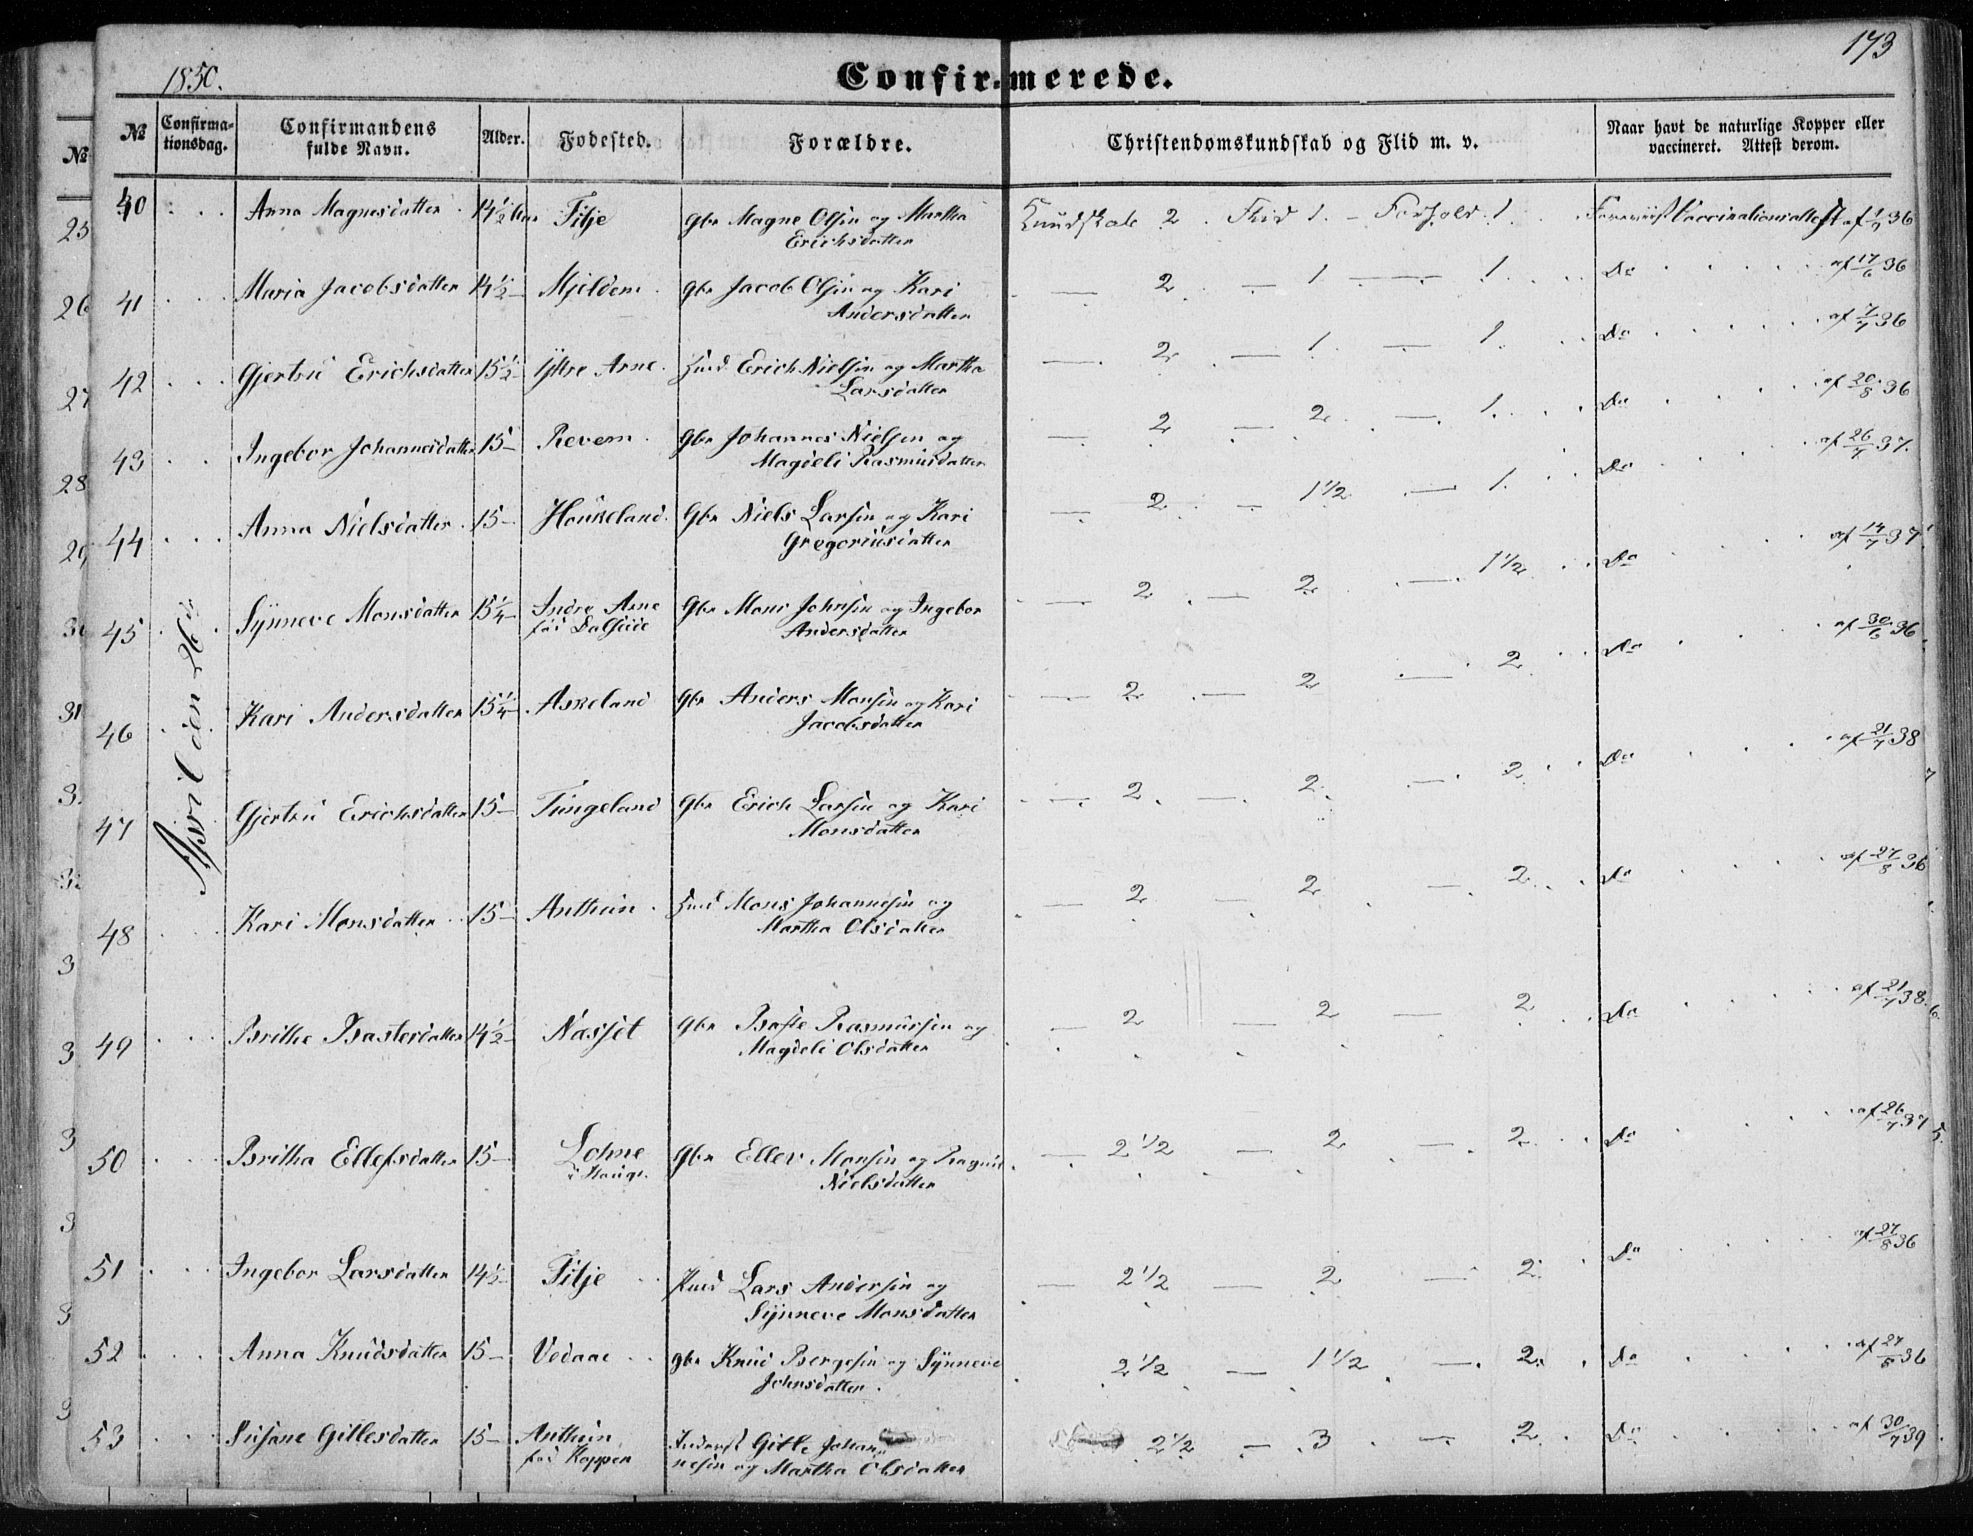 173
1850.
Confirmerede.
№ Confirmationsdag. Confirmandens fulde Navn. Alder. Fodested. Forældre. Christendomskundskab og Flid m. v. Naar havt de naturlige Kopper eller vaccineret. Attest derom.
April den
40 Anna Magnesdatter 14½ Aar Tilje Gbr Magne Olsen og Martha Erichsdatter Kundskab 2 Flid 1. – Forhold 1 Foreviist Vaccinationsattest af 36
41 Maria Jacobsdatter 14½ Mjeldem Gbr Jacob Olsen og Kari Andersdatter — 2 — 1 — 1. Do af 17/6 36
42 Gjertru Erichsdatter 15½ Ytre Arne. Huusd Erich Nielsen og Martha Larsdatter — 2 — 1. — 1. Do af 7/7 36
43 Ingebor Johannesdatter 15 – Revem Gbr Johannes Nielsen og Magdeli Rasmusdatter — 2 — 2 — 1. Do af 20/8 36
44 Anna Nielsdatter 15 – Houkeland. Gbr Niels Larsen og Kari Gregoriusdatter — 2 — 1½ — 1. Do af 26/7 37.
45 Synneve Monsdatter 15¼ Indre Arne fød Dalsiide Gbr Mons Johnsen og Ingebor Andersdatter — 2 — 2 — 1½ Do af 14/7 37
46 Kari Andersdatter 15¼ Askeland Gbr Anders Monsen og Kari Jacobsdatter — 2 — 2 — 2 Do af 30/6 36
47 Gjertru Erichsdatter 15 – Tungeland Gbr Erich Larsen og Kari Monsdatter — 2 — 2 — 2 Do af 21/7 38
48 Kari Monsdatter 15 – Anthun Huusd Mons Johannesen og Martha Olsdatter — 2 — 2 — 2 Do af 27/8 36
49 Brithe Bastesdatter 14½ Næsset Gbr Baste Rasmussen og Magdeli Olsdatter — 2 — 2 — 2 Do af 21/7 38
50 Britha Ellefsdatter 15 – Lohne i Hauge Gbr Ellev Monsen og Nielsdatter — 2½ — 2 — 2 Do af 26/7 37
51 Ingebor Larsdatter 14½ Tilje Huusd Lars Andersen og Synneve Monsdatter — 2½ — 2 — 2 Do af 27/8 36
52 Anna Knudsdatter 15 – Vedaae Gbr Knud Bergesen og Synneve Johnsdatter. 2½ — 1½ — 2 Do af 27/8 36
53 Susane Gittesdatter 15 – Anthun fød Koppen Inderst Gitle Johannesen og Martha Olsdatter 2½ — 3 — 2 Do af 30/7 39
25
26
27
28
29
31